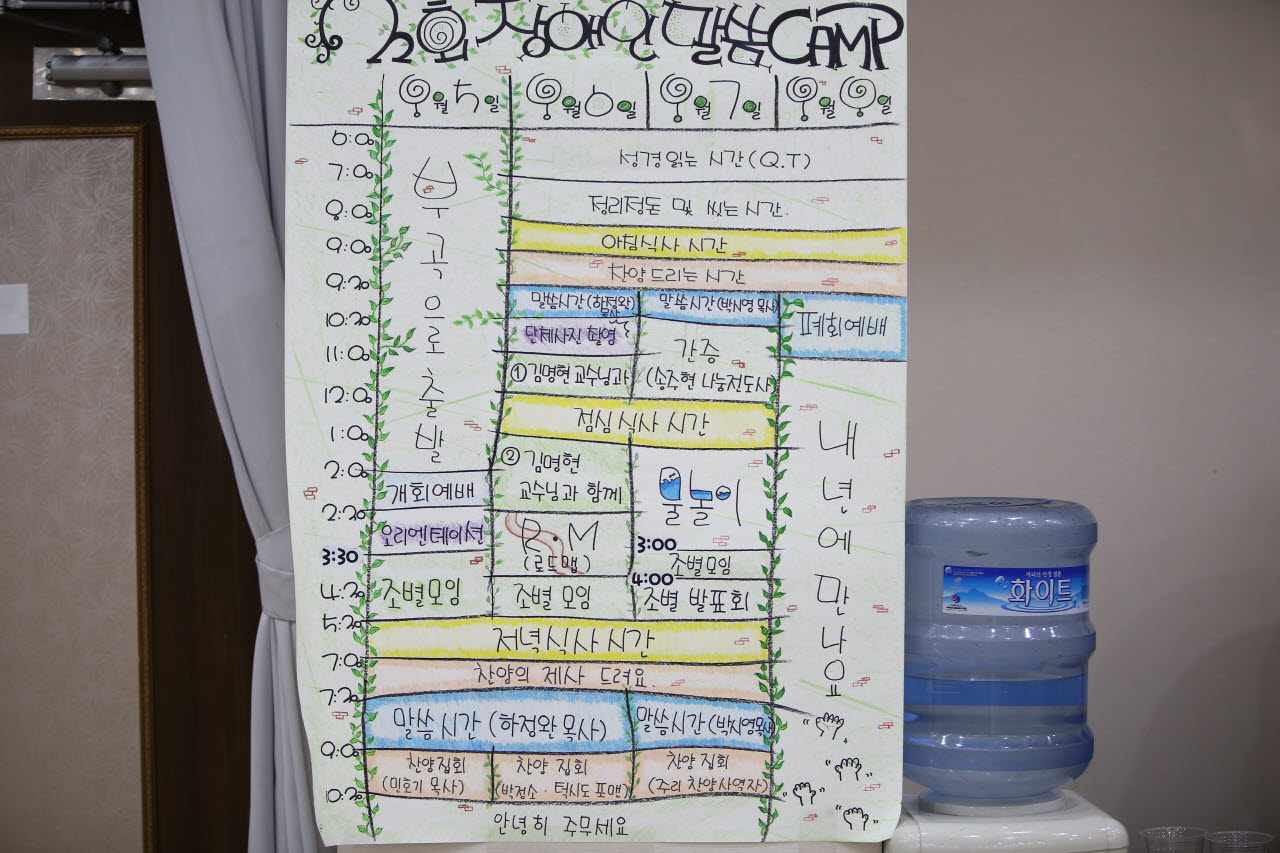 장애인 말씀CAMP
8월 5일 8월 6일 8월 7일 8월 8일
6:00
성경 읽는 시간(Q.T)
7:00
정리정돈 및 씻는 시간.
8:00
아침식사 시간
9:00
찬양 드리는 시간
9:30
말씀시간(하정완 목사)
말씀시간(박시영 목사)
폐회예배
10:30
단체사진 촬영
간증
(송주현 나눔전도사)
11:00
①김명현 교수님과
12:00
점심 식사 시간
부곡으로출발
1:00
②김명현
교수님과 함께
물놀이
2:00
개회예배
2:30
오리엔테이션
R·M
(로드맵)
3:00
조별모임
3:30
4:00
조별 발표회
4:30
조별모임
조별 모임
5:30
저녁식사 시간
내년에만나요
7:00
찬양의 제사 드려요.
7:30
말씀 시간 (하정완 목사)
말씀시간(박시영목사)
9:00
찬양집회
(민호기 목사)
찬양 집회
(박정소 · 턱시도 포맨)
찬양 집회
(주리 찬양사역자)
10:30
안녕히 주무세요
화이트